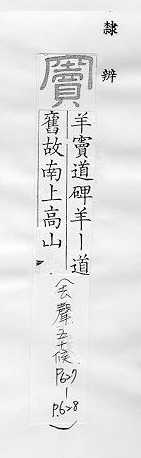 隸辨
竇
羊竇道碑羊丨道
舊故南上高山
(去聲五十候 P627-P.628)